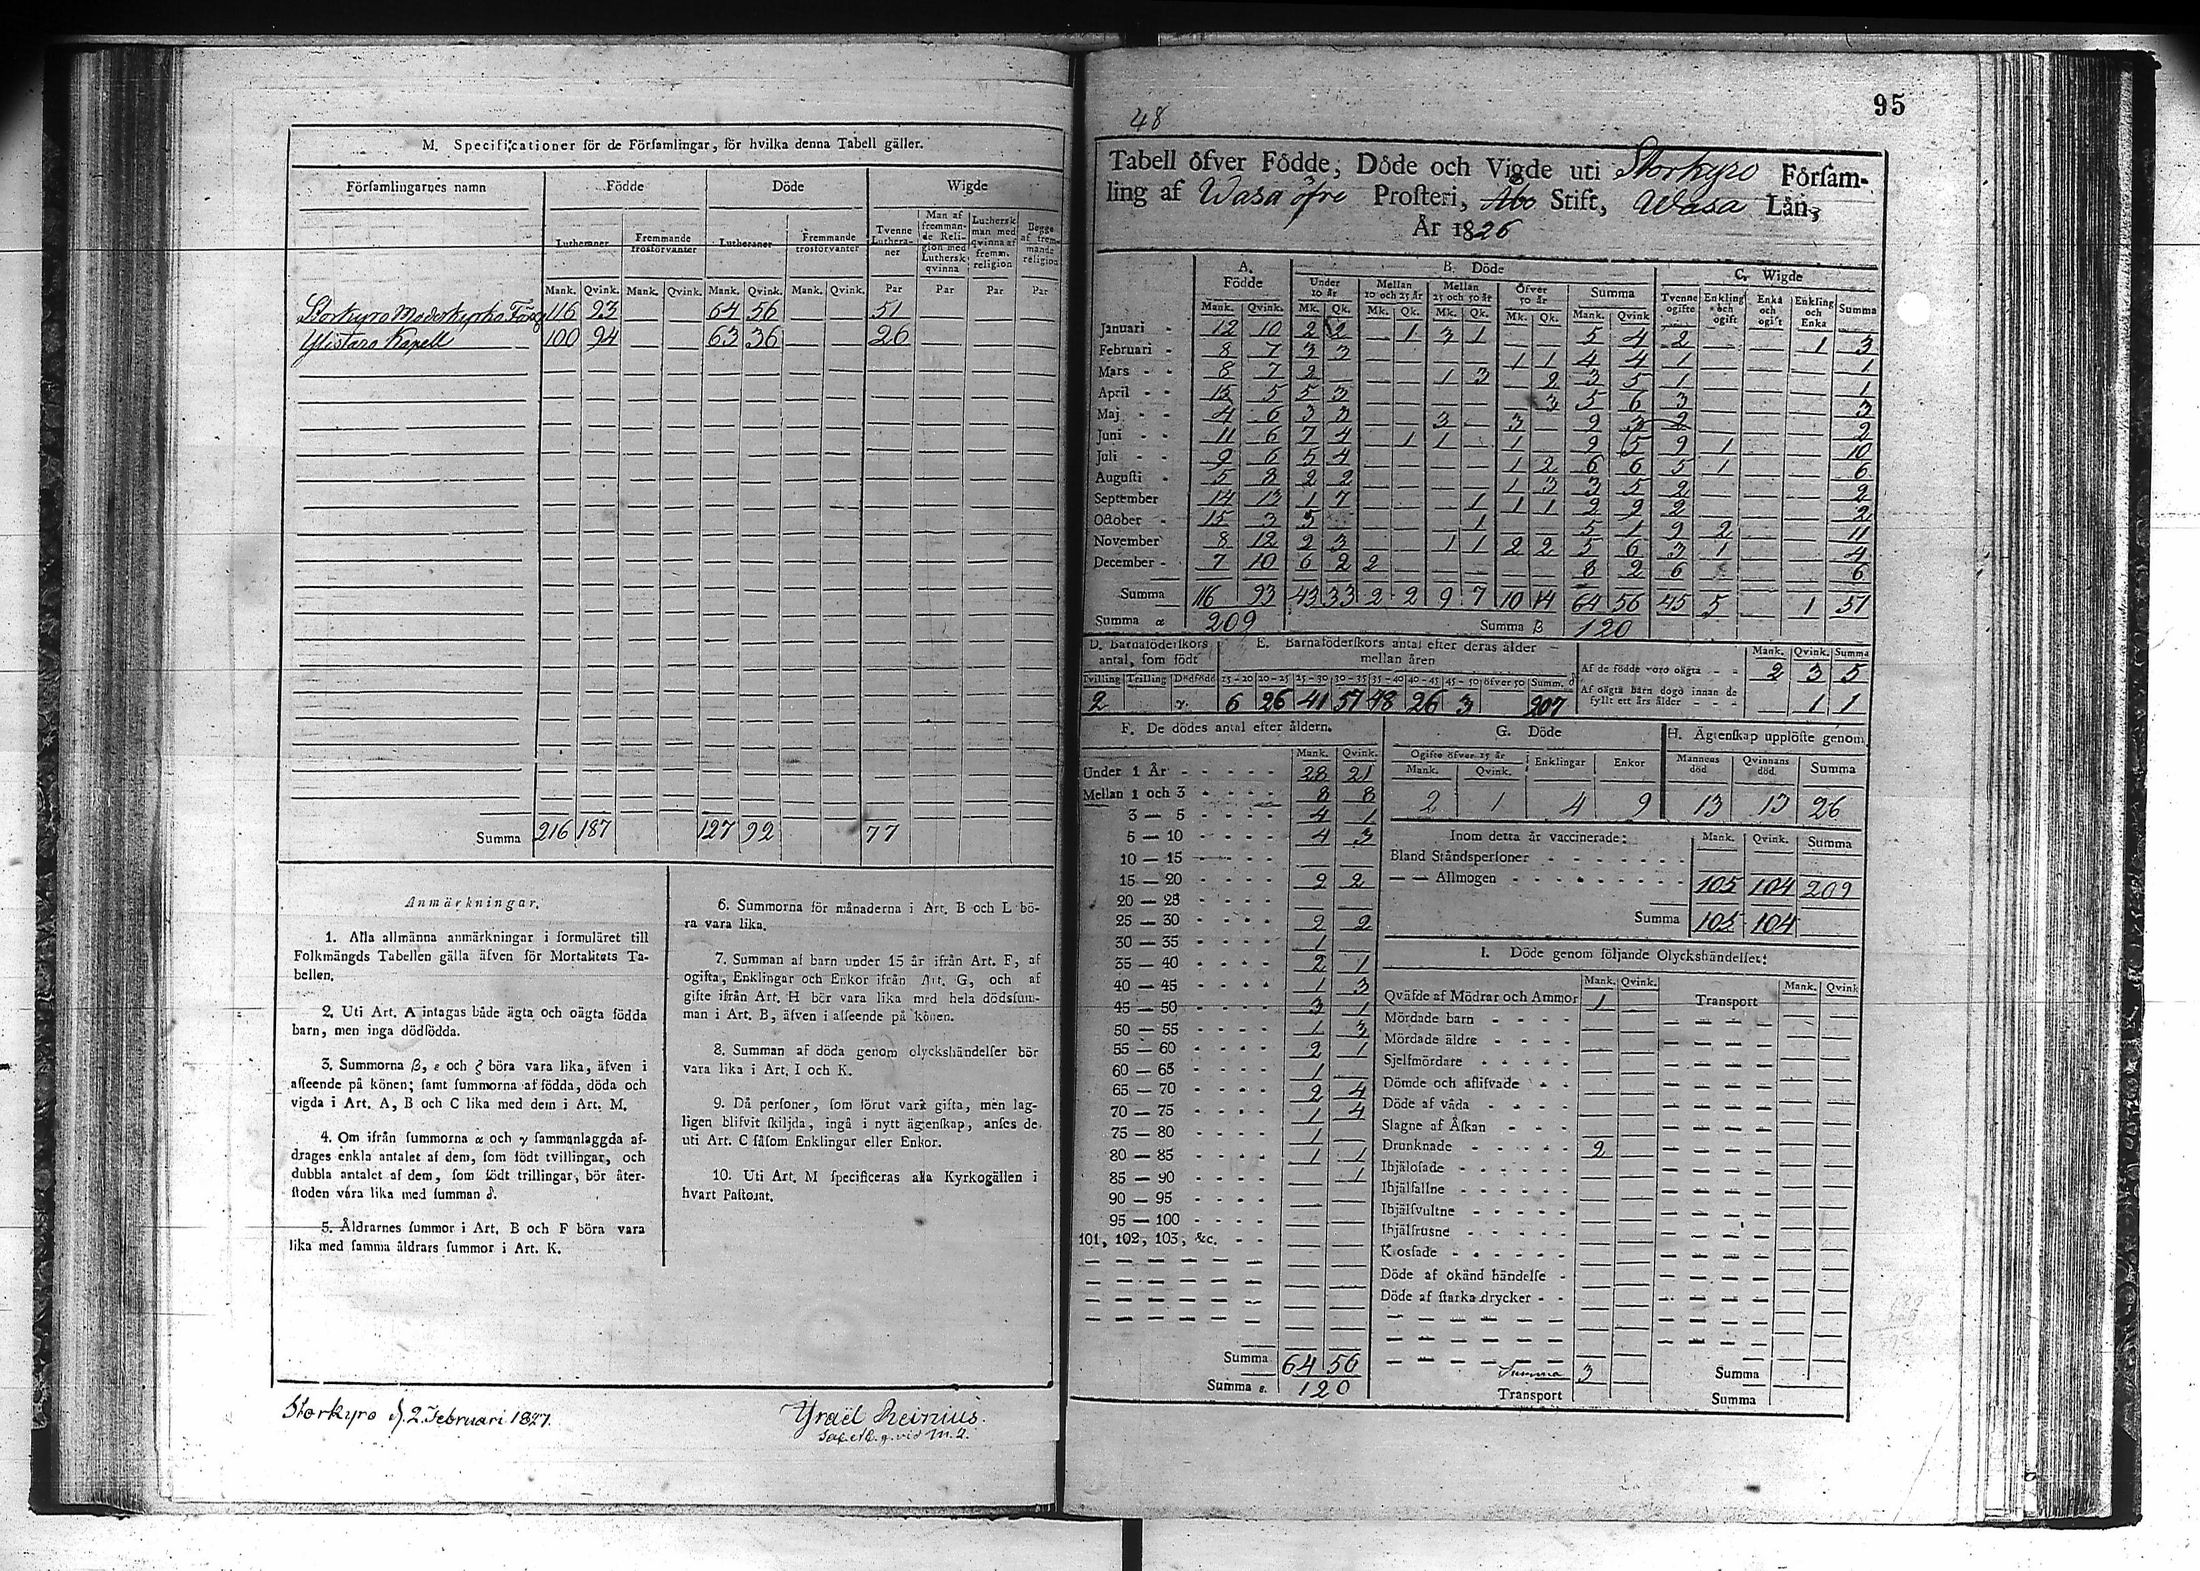 M. Specificationer för de Församlingar, för hvilka denna Tabell gäller.
Församlingarnes namn Födde Döde Wigde
Lutheraner Fremmande trosförvanter Lutheraner Fremmande trosförvanter Tvenne Lutheraner Man af fremmande Religion med Luthersk qvinna Luthersk man med qvinna af fremm. religion Begge af fremmande religion
Mank. Qvink. Mank. Qvink. Mank. Qvink. Mank. Qvink. Par Par Par Par
Storkyro Moderkyrko Förs 116 93 64 56 51
Ylistaro Kapell 100 94 63 36 26
Summa 216 187 127 92 77
Anmärkningar.
1. Alla allmänna anmärkningar i formuläret till
Folkmängds Tabellen gälla äfven för Mortalitets Ta-
bellen.
2. Uti Art. A intagas både ägta och oägta födda
barn, men inga dödfödda.
3. Summorna β, ε och ζ böra vara lika, äfven i
afseende på könen; samt summorna af födda, döda och
vigda i Art. A, B och C lika med dem i Art. M.
4. Om ifrån summorna α och γ sammanlaggda af-
drages enkla antalet af dem, som födt tvillingar, och
dubbla antalet af dem, som födt trillingar, bör åter-
stoden våra lika med summan δ.
5. Åldrarnes summor i Art. B och F böra vara
lika med samma åldrars summor i Art. K.
6. Summorna för månaderna i Art. B och L bö-
ra vara lika.
7. Summan af barn under 15 år ifrån Art. F, af
ogifta, Enklingar och Enkor ifrån Art. G, och af
gifte ifrån Art. H bör vara lika med hela dödssum-
man i Art. B, äfven i afseende på könen.
8. Summan af döda genom olyckshändelser bör
vara lika i Art. I och K.
9. Då personer, som förut varit gifta, men lag-
ligen blifvit skiljda, ingå i nytt ägtenskap, anses de
uti Art. C såsom Enklingar eller Enkor.
10. Uti Art. M specificeras alla Kyrkogällen i
hvart Pastorat.
Storkyro d. 2. Februari 1827.
Ysraël Reinius.
48
95
Tabell öfver Födde, Döde och Vigde uti Storkyro Församling
af Wasa öfre Prosteri, Åbo Stift, Wasa Län,
År 1826
A. Födde B. Döde C. Wigde
Under 10 år Mellan 10 och 25 år Mellan 25 och 50 år Öfver 50 år Summa Tvenne ogifte Enkling och ogift Enka och ogift Enkling och Enka Summa
Mank. Qvink. Mk. Qk. Mk. Qk. Mk. Qk. Mk. Qk. Mank. Qvink
Januari 12 10 2 2 1 3 1 5 4 2 1 3
Februari 8 7 3 3 1 1 4 4 1 1
Mars 8 7 2 1 3 2 3 5 1 1
April 15 5 5 3 3 5 6 3 3
Maj 4 6 3 3 3 3 9 3 2 2
Juni 11 6 7 4 1 1 1 9 5 9 1 10
Juli 9 6 5 4 1 2 6 6 5 1 6
Augusti 5 8 2 2 1 3 3 5 2 2
September 14 13 1 7 1 1 1 2 9 2 2
October 15 3 5 1 5 1 9 2 11
November 8 12 2 3 1 1 2 2 5 6 3 1 4
December 7 10 6 2 2 8 2 6 6
Summa 116 93 43 33 2 2 9 7 10 14 64 56 45 5 1 51
Summa α 209 Summa β 120
D. Barnaföderskors antal, som födt
Tvilling Trilling Dödfödd
2 γ.
E. Barnaföderskors antal efter deras ålder mellan åren
15-20 20-25 25-30 30-35 35-40 40-45 45-50 öfver 50 Summ. δ
6 26 41 57 48 26 3 207
Mank. Qvink. Summa
Af de födde voro oägta 2 3 5
Af oägta barn dogo innan de fyllt ett års ålder 1 1
F. De dödes antal efter åldern.
Mank. Qvink.
Under 1 År 28 21
Mellan 1 och 3 8 8
3 — 5 4 1
5 — 10 4 3
10 — 15
15 — 20 2 2
20 — 25
25 — 30 2 2
30 — 35 1
35 — 40 2 1
40 — 45 1 3
45 — 50 3 1
50 — 55 1 3
55 — 60 2 1
60 — 65 1
65 — 70 2 4
70 — 75 1 4
75 — 80 1
80 — 85 1 1
85 — 90 1
90 — 95
95 — 100
101, 102, 103, &c.
Summa 64 56
Summa ε. 120
G. Döde
Ogifte öfver 15 år Enklingar Enkor
Mank. Qvink.
2 1 4 9
H. Ägtenskap upplöste genom
Mannens död Qvinnans död. Summa
13 13 26
Inom detta år vaccinerade: Mank. Qvink. Summa
Bland Ståndspersoner
— — Allmogen 105 104 209
Summa 105 104
I. Döde genom följande Olyckshändelser:
Mank. Qvink. Mank. Qvink
Qväfde af Mödrar och Ammor 1 Transport
Mördade barn
Mördade äldre
Sjelfmördare
Dömde och aflifvade
Döde af våda
Slagne af Åskan
Drunknade 2
Ihjälosade
Ihjälfallne
Ihjälsvultne
Ihjälfrusne
Kosfade
Döde af okänd händelse
Döde af starka drycker
Summa 3 Summa
Transport Summa